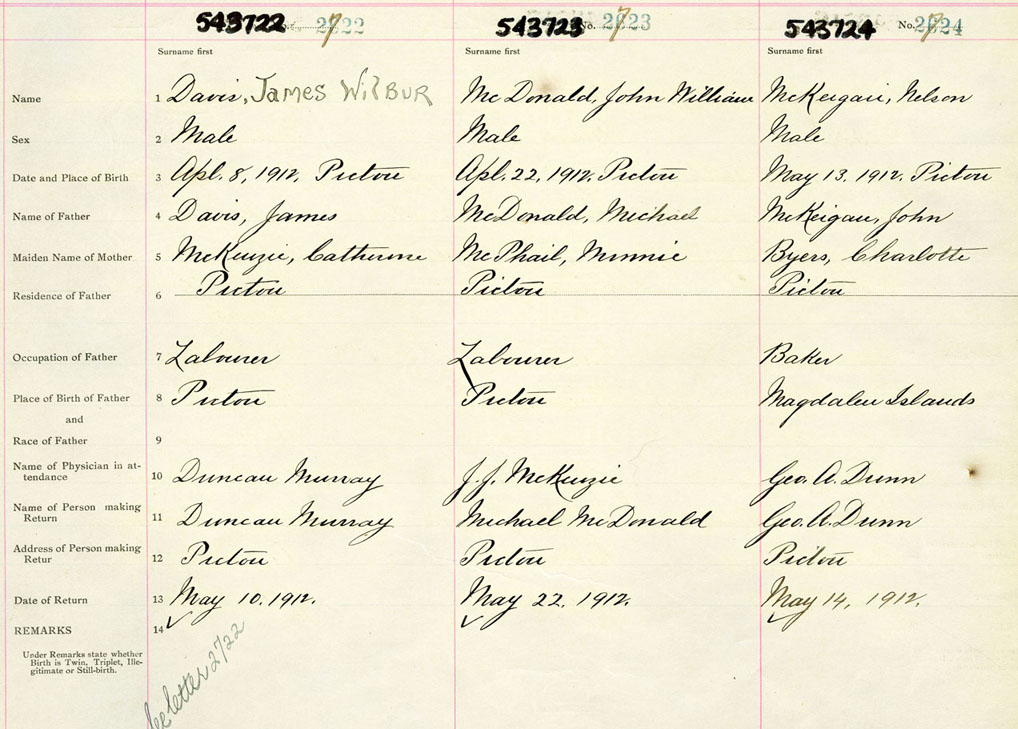 543722 2722 543723 No. 2723 543724 No. 2724
Surname first Surname first Surname first
Name 1 Davis, James Wilbur McDonald, John William McKeigan, Nelson
Sex 2 Male Male Male
Date and Place of Birth 3 Apl. 8, 1912, Pictou Apl. 22, 1912, Pictou May 13, 1912, Pictou
Name of Father 4 Davis, James McDonald, Michael McKeigan, John
Maiden Name of Mother 5 McKenzie, Catherine McPhail, Minnie Byers, Charlotte
Residence of Father 6 Pictou Pictou Pictou
Occupation of Father 7 Labourer Labourer Baker
Place of Birth of Father 8 Pictou Pictou Magdalen Islands
and
Race of Father 9
Name of Physician in at-
tendance 10 Duncan Murray J.J. McKenzie Geo. A. Dunn
Name of Person making
Return 11 Duncan Murray Michael McDonald Geo. A. Dunn
Address of Person making
Retur 12 Pictou Pictou Pictou
Date of Return 13 May 10, 1912. May 22, 1912. May 14, 1912.
REMARKS 14
Under Remarks state whether
Birth is Twin, Triplet, Ille-
gitimate or Still-birth.
See letter 2722